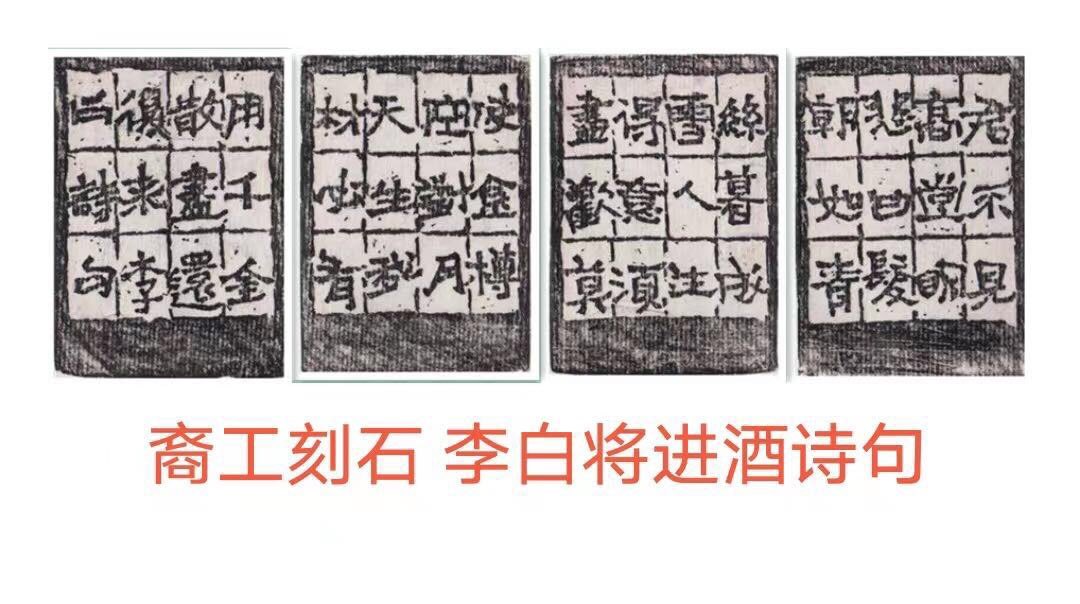 君不見
高堂明
悲白髮
朝如青
絲暮成
雪人生
得意須
盡歡莫
使金樽
空對月
天生我
材必有
用千金
散盡還
復来李
白詩句
裔工刻石 李白将进酒诗句